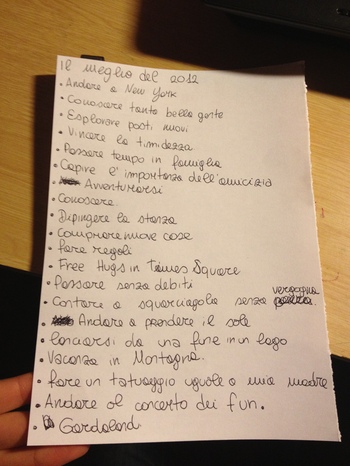 Il meglio del 2012
• Andare a New York
• Conoscere tanta bella gente
• Esplorare posti nuovi
• Vincere la timidezza
• Passare tempo in famiglia
• Capire l'importanza dell'amicizia
• Avventurarsi
• Conoscere
• Dipingere la stanza
• Comprare nuove cose
• Fare regali
• Free Hugs in Times Square
• Passare senza debiti
• Cantare a squarciagola senza vergogna
• Andare a prendere il sole
• Lanciarsi da una fune in un lago
• Vacanza in Montagna.
• Fare un tatuaggio uguale a mia madre
• Andare al concerto dei fun.
• Gardaland